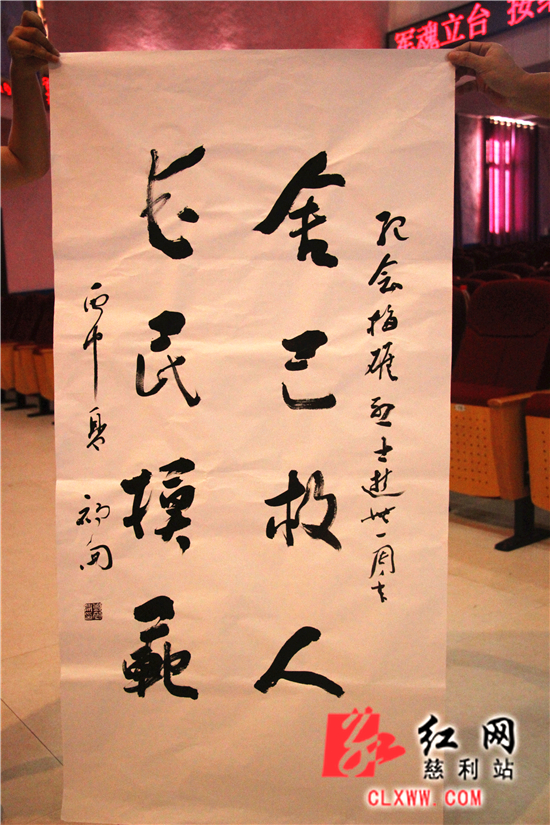 军魂立台 按
纪念烈士逝世一周年
舍己救人
民模範
丙申夏
红网
慈利站
CLXWW.COM